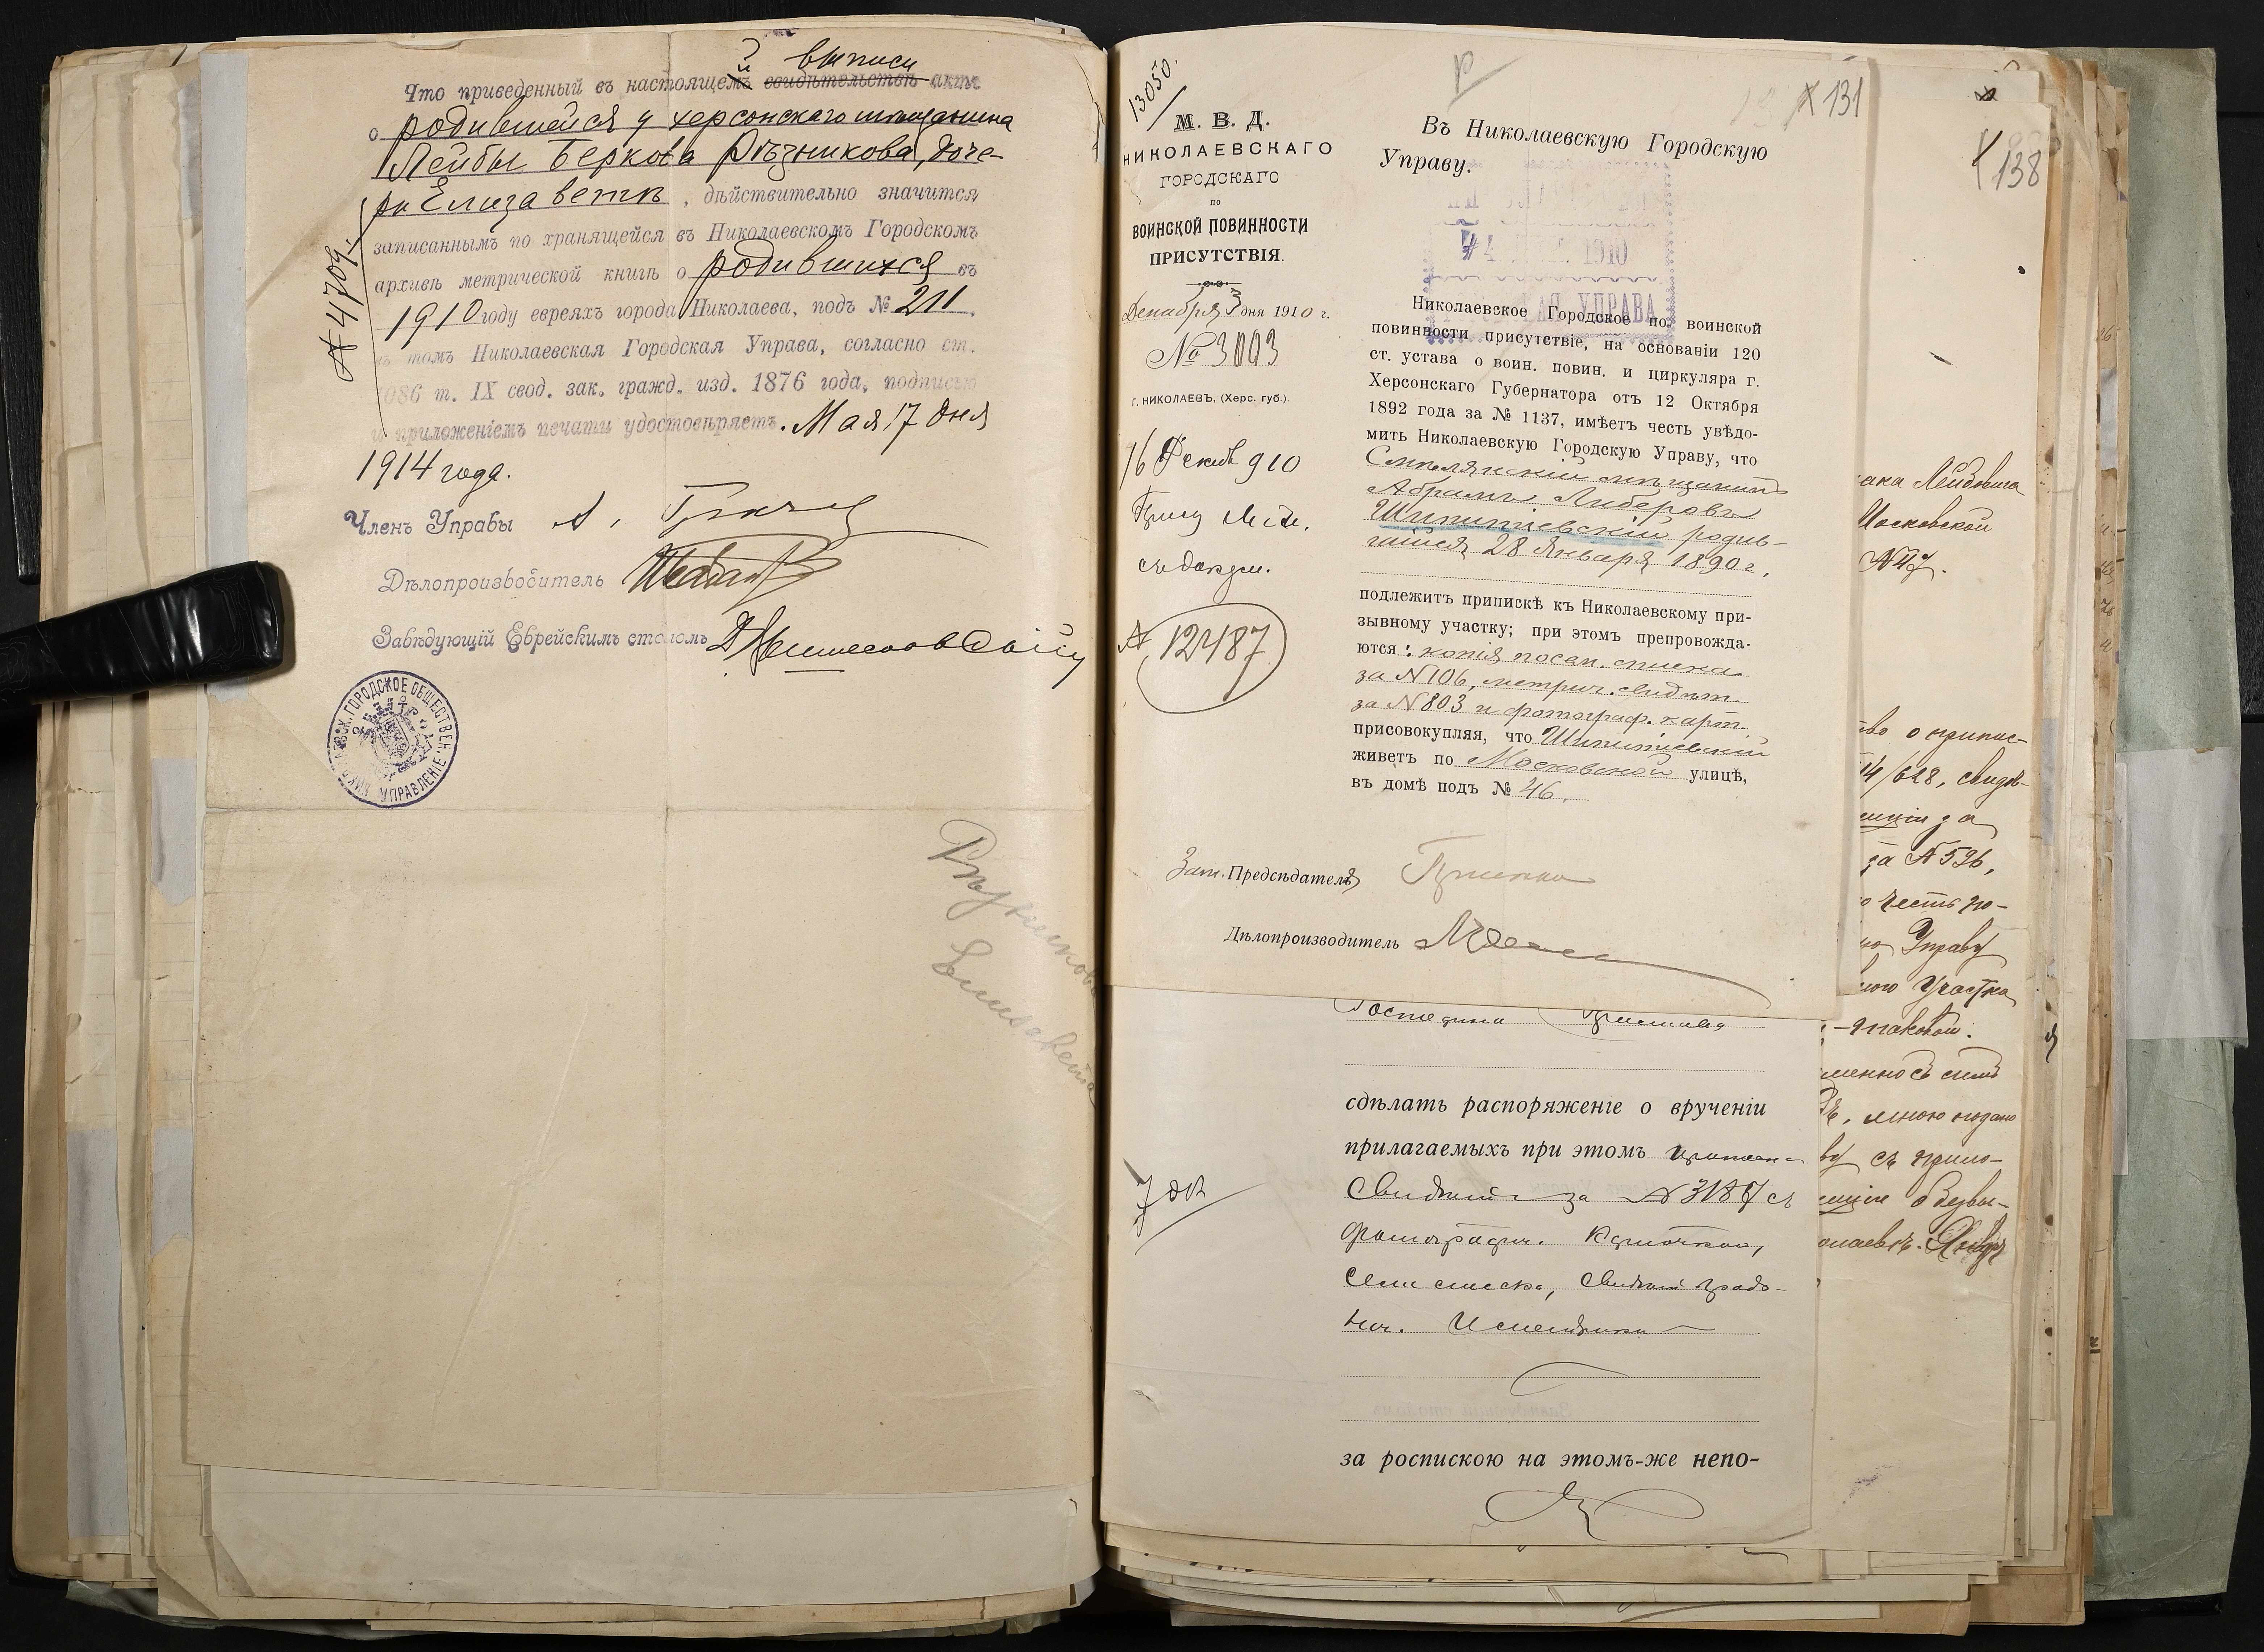 й выписи
Что приведенный въ настоящемъ свидѣтельствѣ актъ
о родившейся у херсонскаго мѣщанина
Лейбы Беркова Рѣзникова, доче-
ри Елизаветѣ, дѣйствительно значится
записаннымъ по хранящейся въ Николаевскомъ Городскомъ
архивѣ метрической книгѣ о родившихся въ
1910 году евреяхъ города Николаева, подъ № 211.
въ томъ Николаевская Городская Управа, согласно ст.
1086 т. IX свод. зак. гражд. изд. 1876 года, подписью
и приложеніемъ печати удостовѣряетъ. Мая 17 дня
1914 года.
№ 4709.
Членъ Управы
Дѣлопроизводитель
Завѣдующій Еврейскимъ столомъ
НИКОЛАЕВСК. ГОРОДСКОЕ ОБЩЕСТВЕН. УПРАВЛЕНІЕ
Рѣзникова
Елисавета
13050.
М. В. Д.
НИКОЛАЕВСКАГО
ГОРОДСКАГО
по
ВОИНСКОЙ ПОВИННОСТИ
ПРИСУТСТВІЯ.
Декабря 3 дня 1910 г.
№ 3003
Г. НИКОЛАЕВЪ, (Херс. губ.).
16 Декаб 910
съ докум.
№ 12487
131
Въ Николаевскую Городскую
Управу.
4 1910
УПРАВА
Николаевское Городское по воинской
повинности присутствіе, на основаніи 120
ст. устава о воин. повин. и циркуляра г.
Херсонскаго Губернатора отъ 12 Октября
1892 года за № 1137, имѣетъ честь увѣдо-
мить Николаевскую Городскую Управу, что
Смѣлянскій мѣщанинъ
Абрамъ Либеровъ
Шпитіевскій родив-
шійся 28 Января 1890 г.
подлежитъ припискѣ къ Николаевскому при-
зывному участку; при этомъ препровожда-
ются: копія посем. списка
за № 106, метрич. свидѣт.
за № 803 и фотограф. карт.
присовокупляя, что Шпитіевскій
живетъ по Московской улицѣ,
въ домѣ подъ № 46.
Зам. Предсѣдателя
Дѣлопроизводитель
Господина Пристава
сдѣлать распоряженіе о врученіи
прилагаемыхъ при этомъ
Свидѣт за № 3187 съ
фотографич. карточкой,
сем списка, свидѣт
7 дк
за роспискою на этомъ-же непо-
138
Лейбовича
Московской
№ 47.
о припис-
14/628, свидѣ-
за
за № 596,
честь по-
Управу
Участка
мною подано
съ прило-